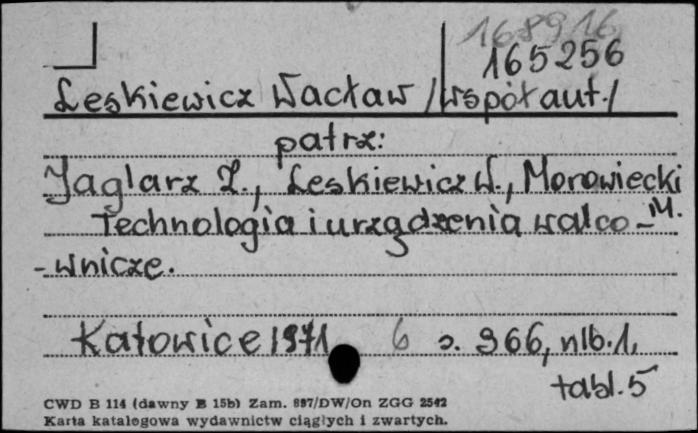 168916
165256
Leskiewicz Wacław /współaut./
patrz:
Jaglarz Z., Leskiewicz W., Morawiecki M.
Technologia i urządzenia walco-
-wnicze.
Katowice 1971 6 s. 366, nlb. 1,
tabl. 5
CWD B 114 (dawny B 15b) Zam. 887/DW/On ZGG 2542
Karta katalogowa wydawnictw ciągłych i zwartych.